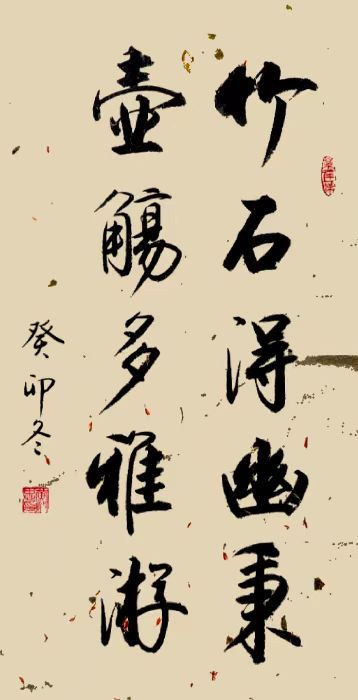 竹石得幽秉
壶觞多雅游
癸卯冬